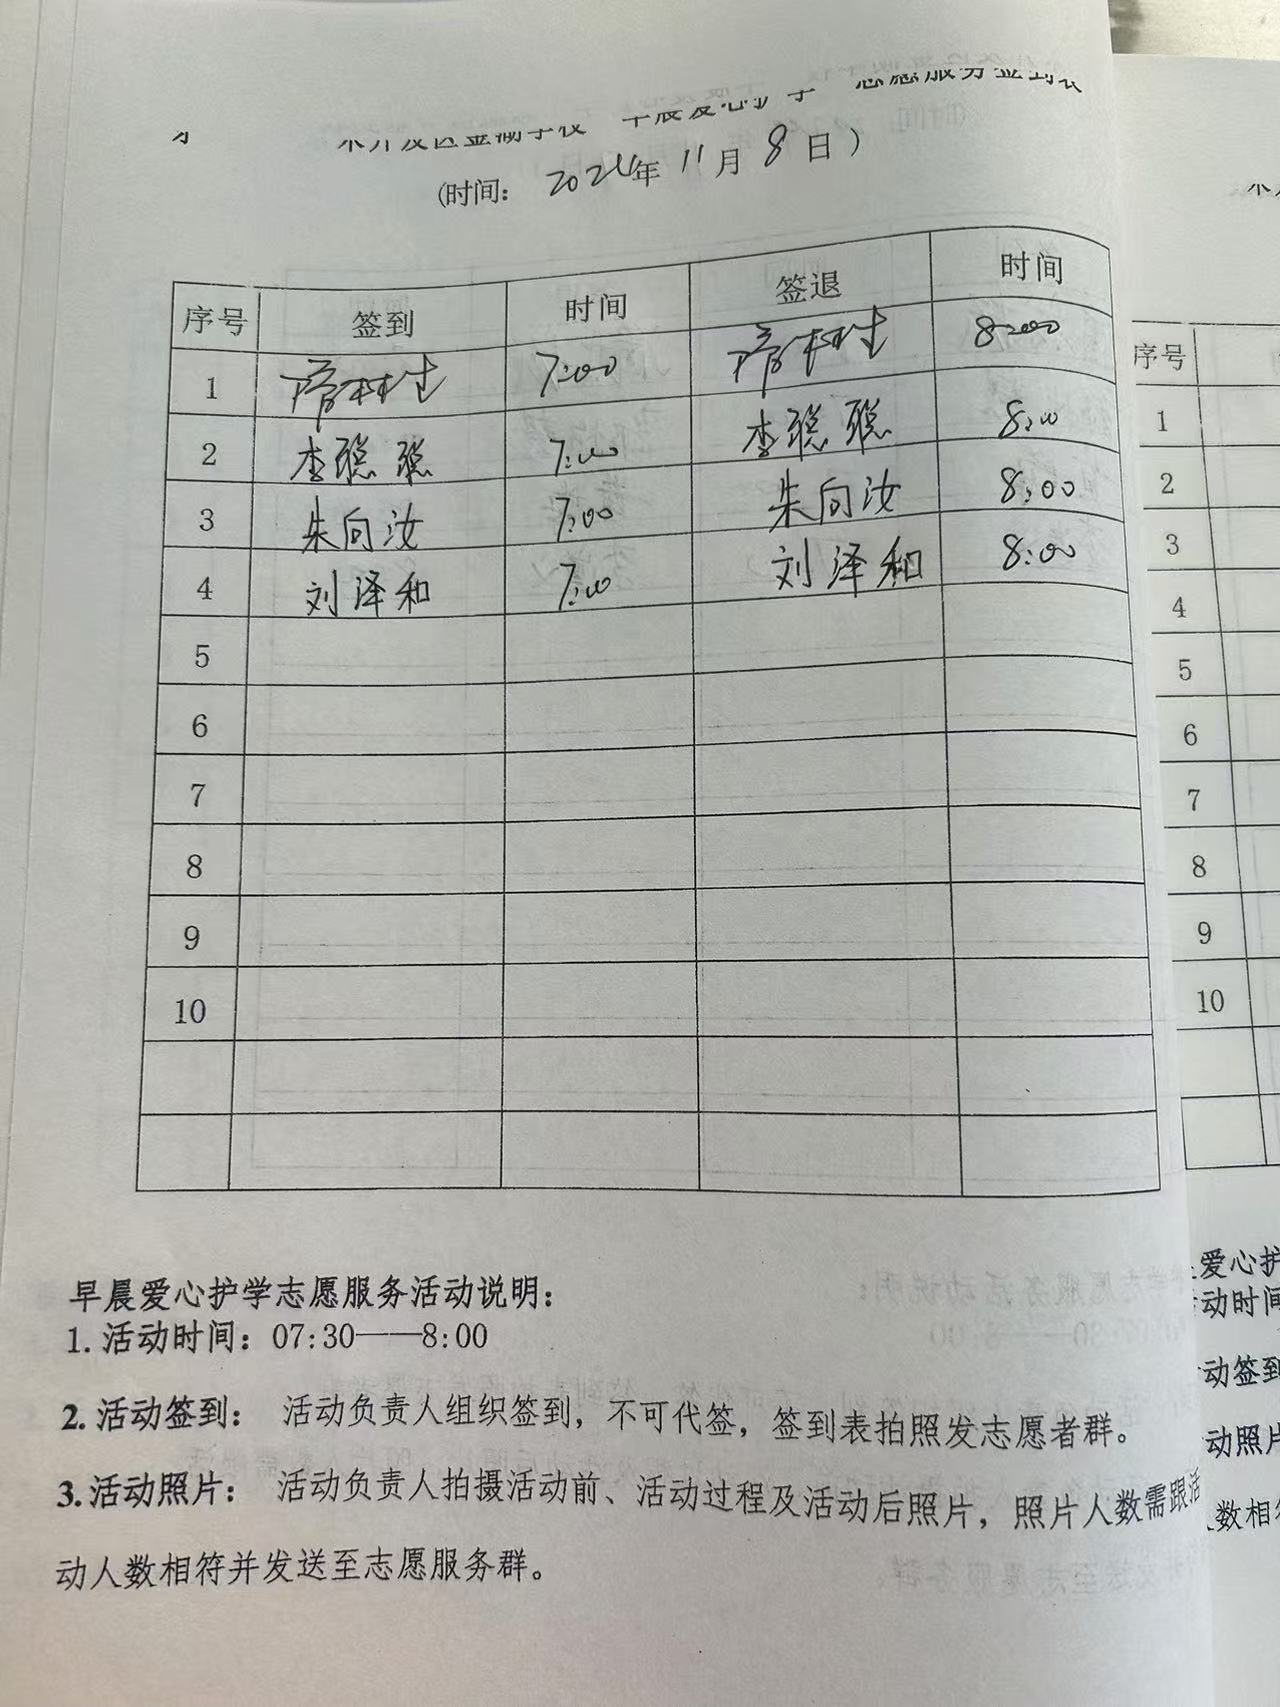 开发区金湖学校“早晨爱心护学”志愿服务签到表
(时间: 2024年 11月 8日)
序号 签到 时间 签退 时间
1 7:00 8:00
2 李聪聪 7:00 李聪聪 8:00
3 朱向汝 7:00 朱向汝 8:00
4 刘泽和 7:00 刘泽和 8:00
5
6
7
8
9
10
早晨爱心护学志愿服务活动说明:
1.活动时间: 07:30——8:00
2.活动签到: 活动负责人组织签到, 不可代签, 签到表拍照发志愿者群。
3.活动照片: 活动负责人拍摄活动前、活动过程及活动后照片, 照片人数需跟活
动人数相符并发送至志愿服务群。
序号
1
2
3
4
5
6
7
8
9
10
爱心护
动时间
动签到
动照片
数相符